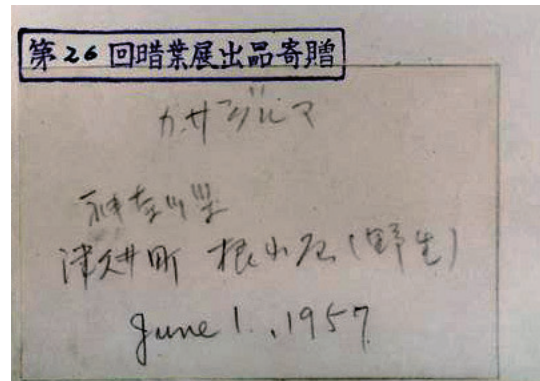 第26回腊葉展出品寄贈
カサグルマ
神奈川県
津久井町 根小屋(野生)
June 1., 1957